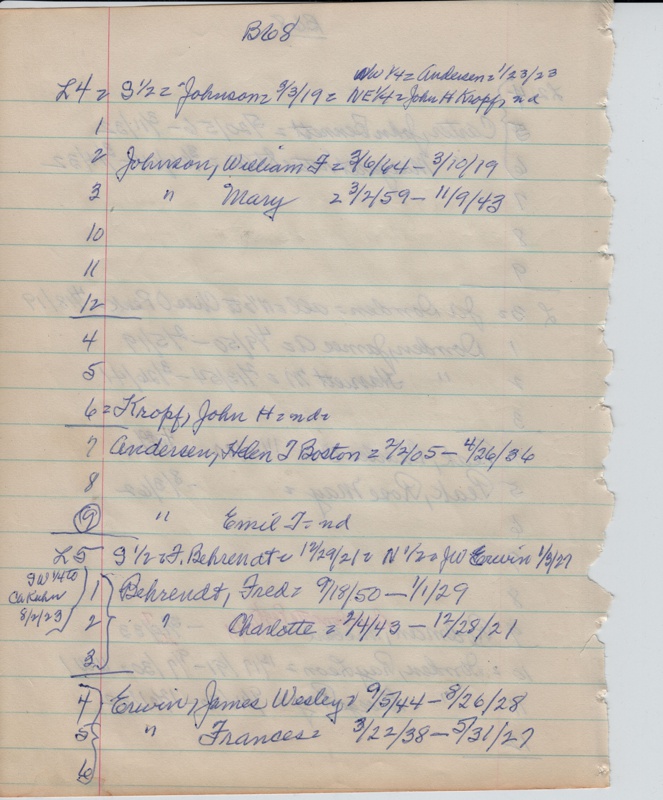 Bl68
NW 1/4 = Andersen = 1/23/23
L4 = S 1/2 = Johnson = 3/3/19 = NE 1/4 = John H Kropf, nd
1
2 Johnson, William F = 3/6/64 - 3/10/19
3 " Mary = 3/2/59 - 11/9/43
10
11
12
4
5
6 = Kropf, John H = nd =
7 Andersen, Helen T Boston = 2/2/05 - 4/26/36
8
9 " Emil T = nd
L5 S 1/2 = F. Behrendt = 12/29/21 = N 1/2 = JW Erwin 1/3/27
SW 1/4 to
Ca Kuhn
8/2/23
1 Behrendt, Fred = 9/18/50 - 1/1/29
2 " Charlotte = 2/4/43 - 12/28/21
3
4 Erwin, James Wesley = 9/5/44 - 8/26/28
5 " Frances = 3/22/38 - 5/31/27
6